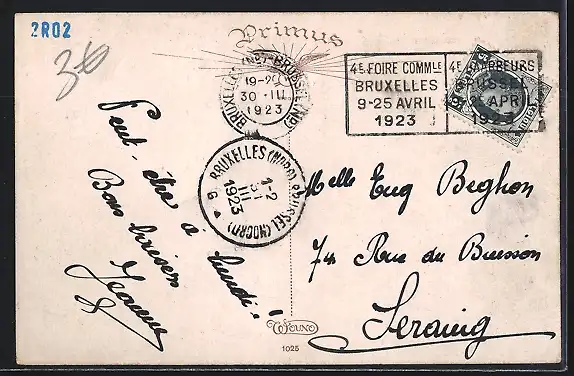 2R02
Primus
BRUXELLES (Nd) - BRUSSEL (Nd)
19-20
30 III
1923
4E FOIRE COMMLE
BRUXELLES
9-25 AVRIL
1923
4E
BRUSSEL
25 APR
1923
BRUXELLES (NORD) BRUSSEL (NOORD)
1-2
31
III
1923
G
Peut-être à lundi!
Bons baisers
Jeanne
Melle Eug Beghon
74 Rue du Buisson
Seraing
1025